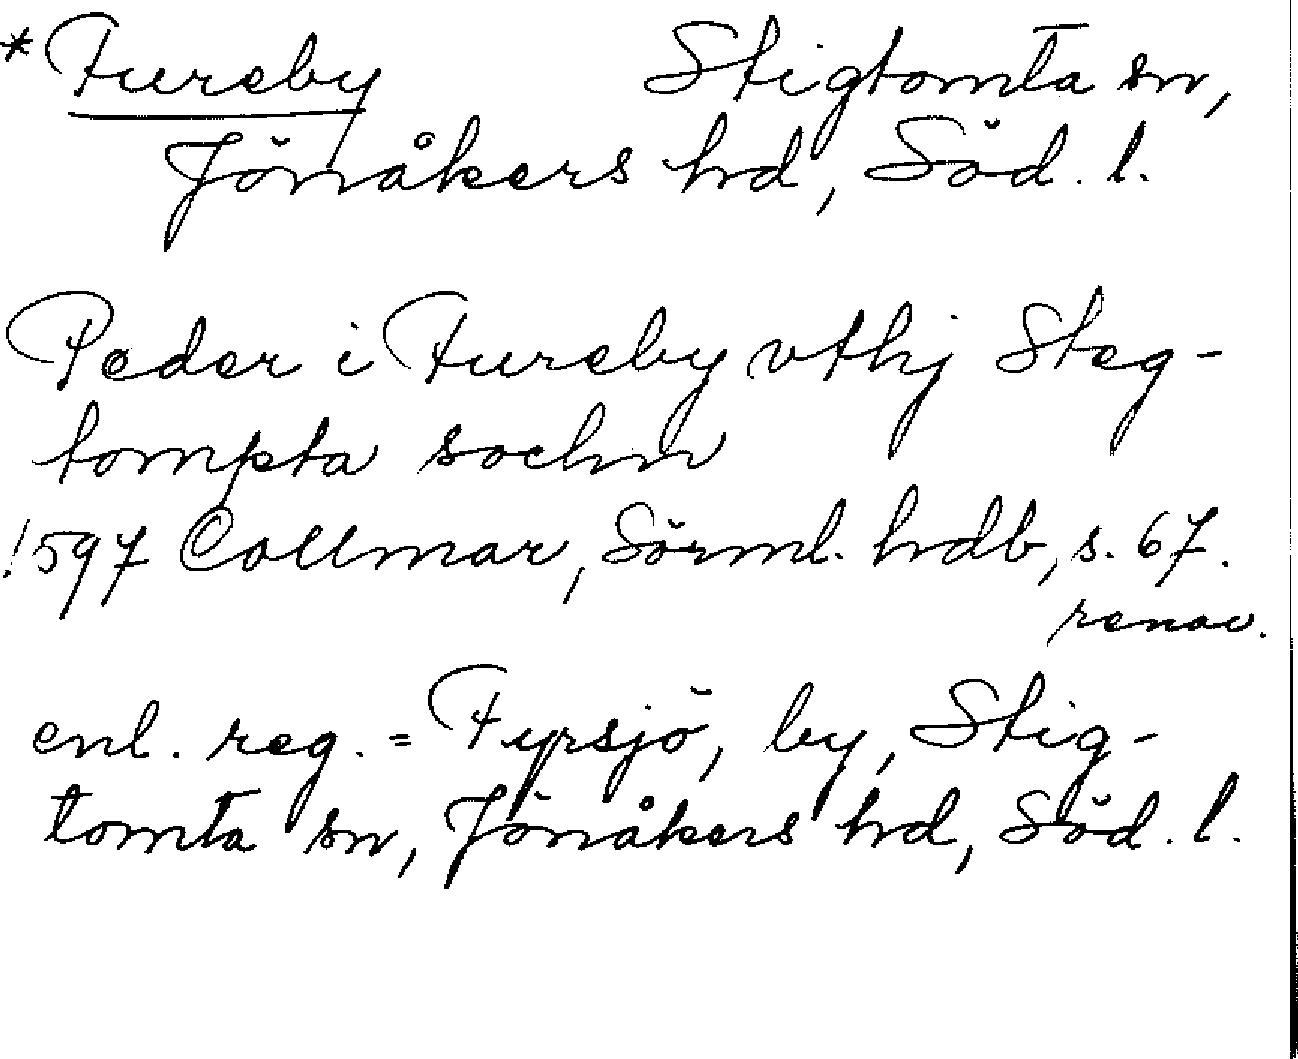 * Fureby Stigtomta sn,
Jönåkers hd, Söd. l.
Peder i Fureby vthj Steg-
tompta sochn
1597 Collmar, Sörml. hdb, s. 67.
renov.
enl. reg. = Fyrsjö, by, Stig-
tomta sn, Jönåkers hd, Söd. l.